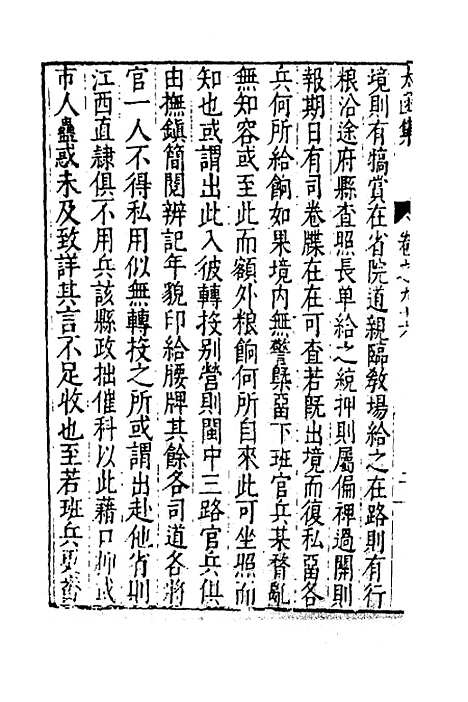 太函集 卷之九十六
境則有犒賞在省院道親臨敎場給之在路則有行
根沿途府縣查照長单給之統押則屬偏裨過關則
報期日有司卷牒在在可查若旣出境而復私畱各
兵何所給餉如果境内無警槩畱下班官兵某瞀亂
無知容或至此而額外粮餉何所自來此可坐照而
知也或謂出此入彼轉投别營則閩中三路官兵俱
由撫鎭簡閱辨記年貌印給腰牌其餘各司道各將
官一人不得私用似無轉投之所或謂出赴他省則
江西直隸俱不用兵該縣政拙催科以此藉口抑或
市人蠱惑未及致詳其言不足收也至若班兵更番